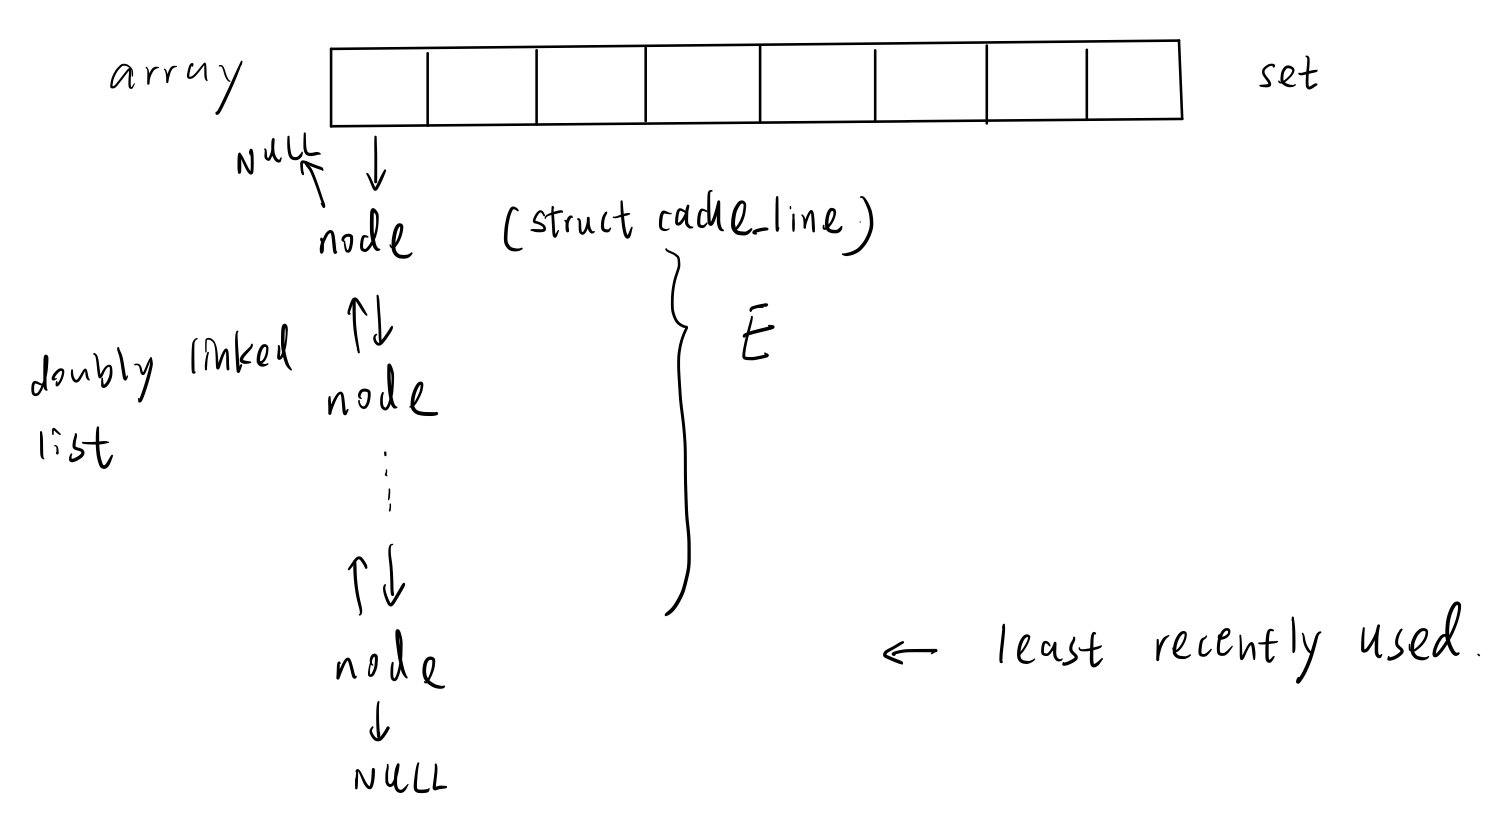 array
set
NULL
node
(struct cache_line)
E
doubly linked
list
node
node
← least recently used.
NULL